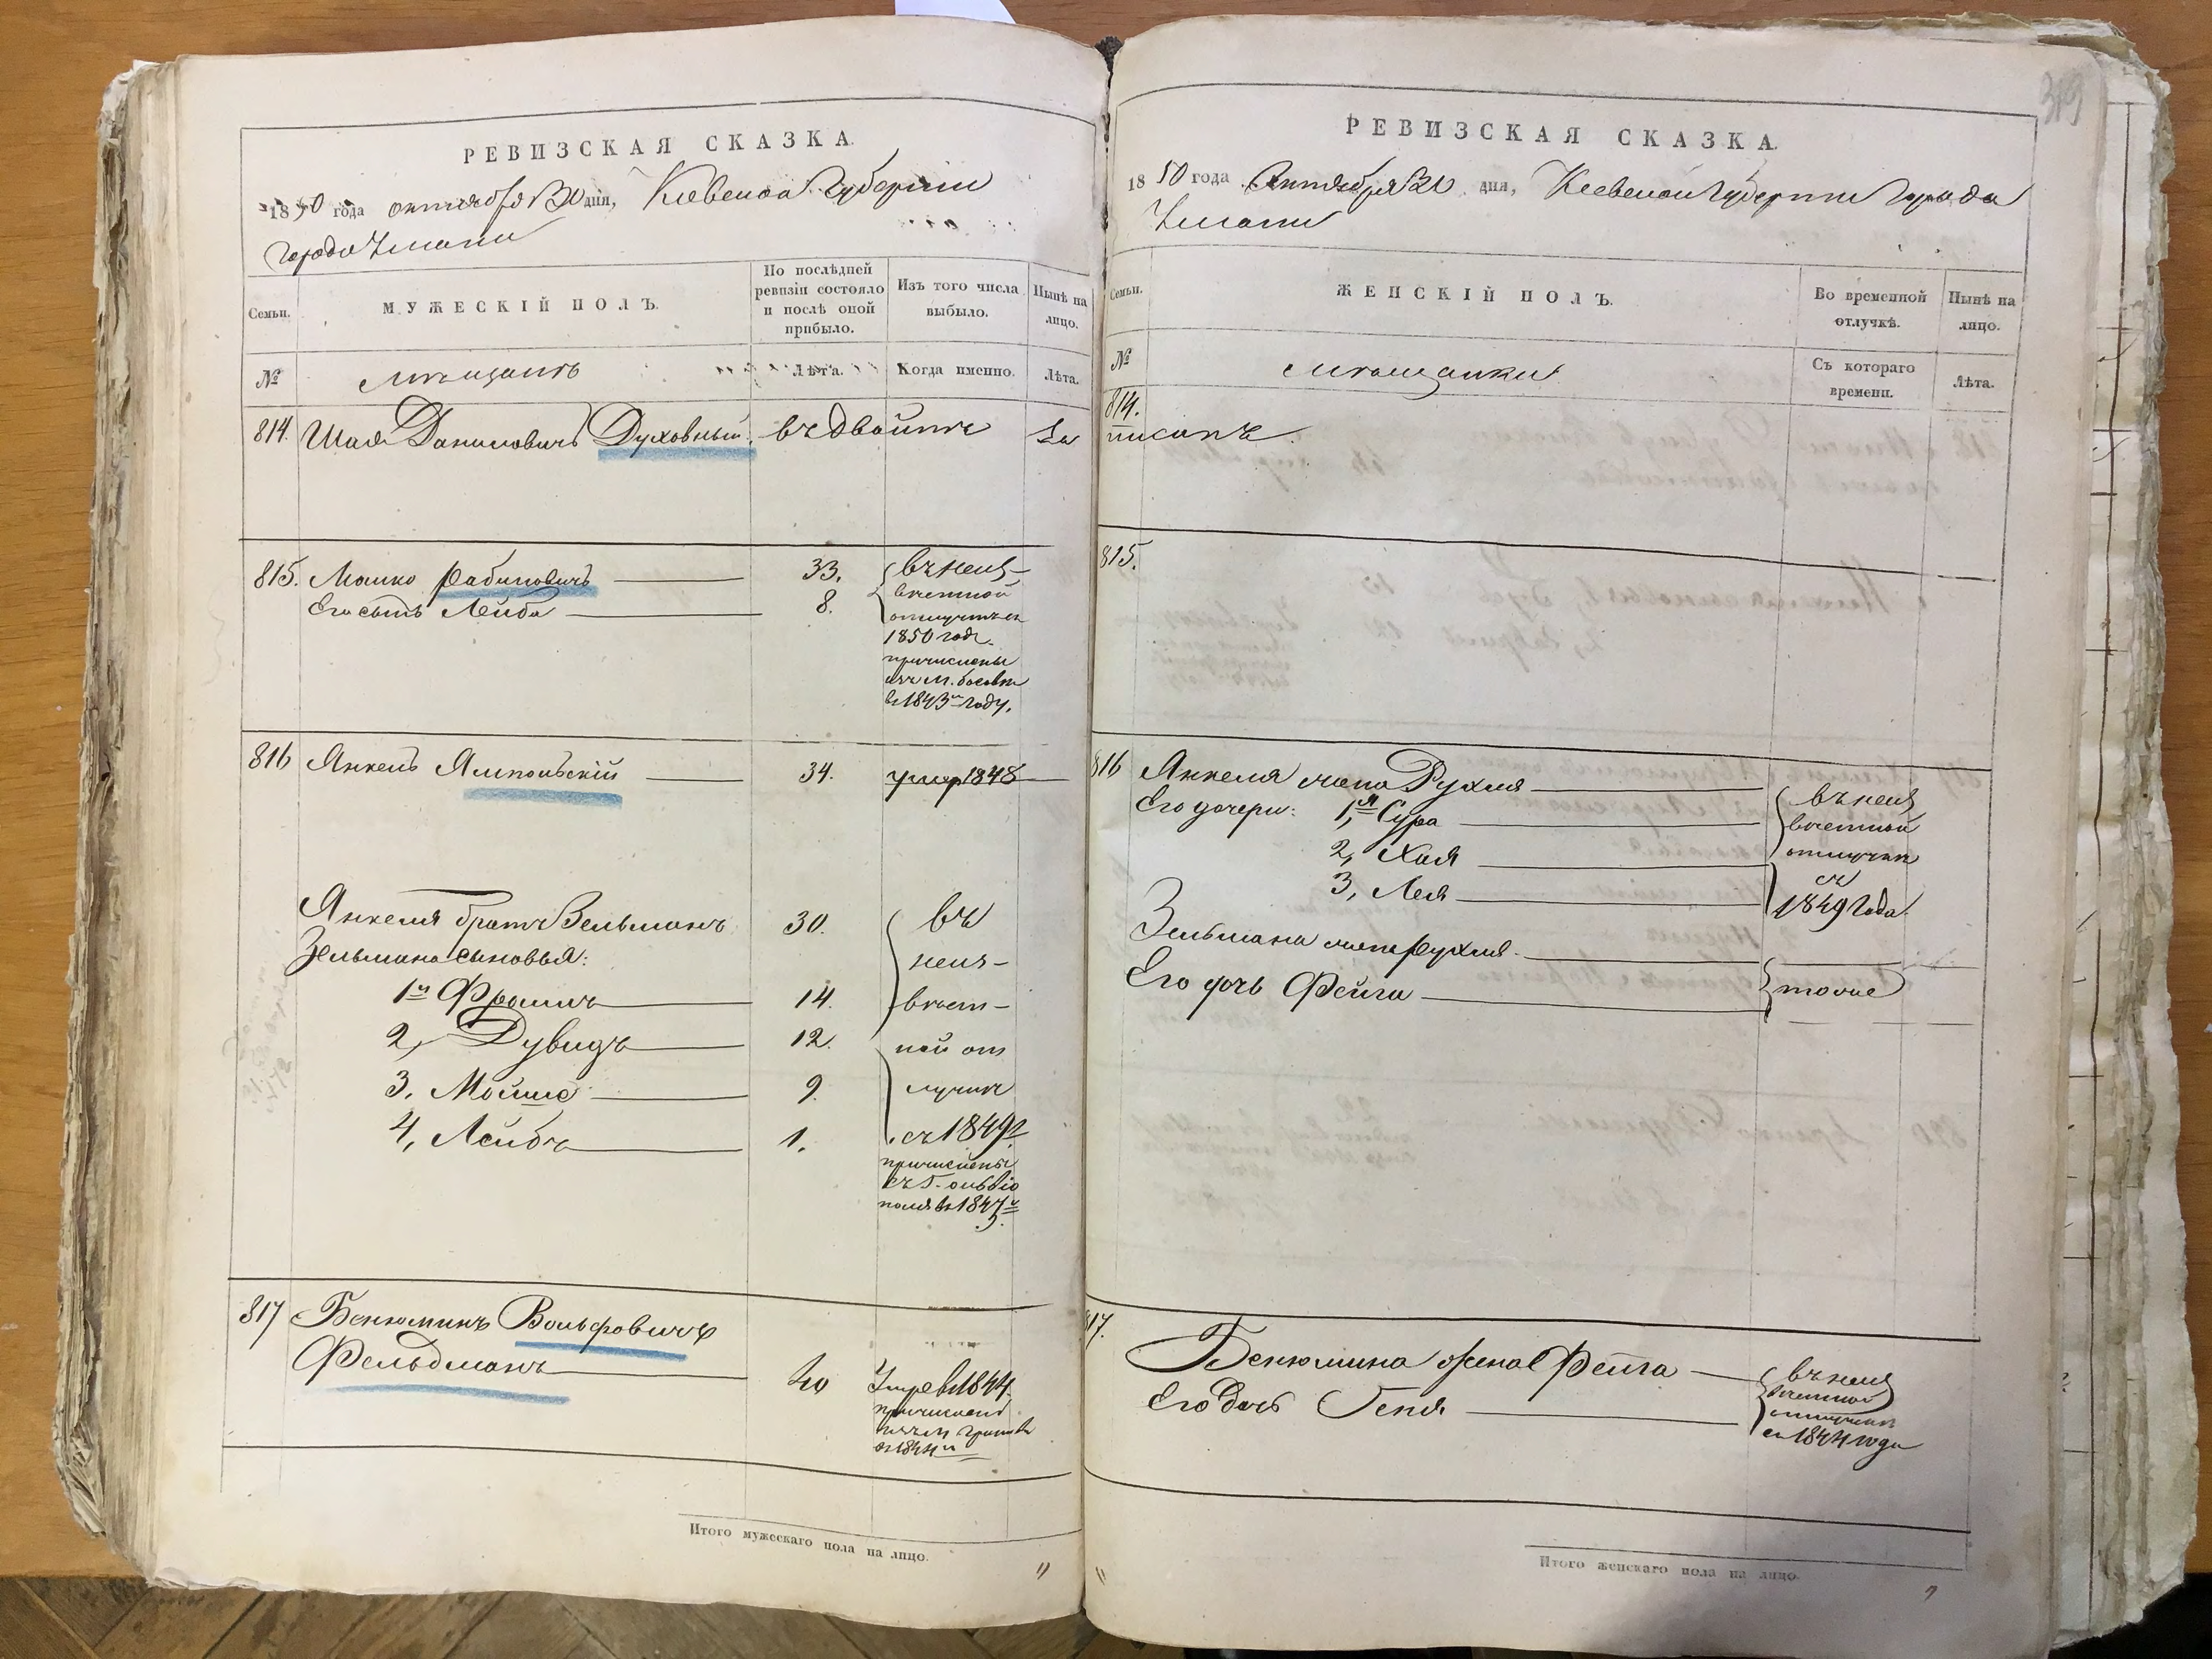 РЕВИЗСКАЯ СКАЗКА
1850 года октября 30 дня, Киевской Губернии
Города Умани
Семьи.
МУЖЕСКІЙ ПОЛЪ.
По послѣдней ревизіи состояло и послѣ оной прибыло.
Изъ того числа выбыло.
Нынѣ на лицо.
№
мѣщанъ
Лѣта.
Когда именно.
Лѣта.
814. Шая Даниловичъ Духовный. въ двойнѣ За
815. Мошко Рабиновичъ 33.
Его сынъ Лейба 8.
въ неиз-
вѣстной
отлучкѣ съ
1850 года.
причислены
изъ м.
въ 1843м году.
816 Янкель Ямпольскій 34. умер 1848
Янкеля братъ Зельманъ 30.
Зельмана сыновья:
1й Фроимъ 14.
2, Дувидъ 12.
3, Мойше 9.
4, Лейбъ 1.
въ
неиз-
вѣст-
ной от
лучкѣ
съ 1849г.
причислены
къ Г. ольвіо
поля въ 1847м
817 Бенюминъ Вольфовичъ
Фельдманъ 40
Умре въ 1844.
причислены
въ 1844м
Итого мужескаго пола на лицо. "
319
РЕВИЗСКАЯ СКАЗКА.
1850 года Октября 30 дня, Киевской Губернии Города
Умани
Семьи.
ЖЕНСКІЙ ПОЛЪ.
Во временной отлучкѣ.
Нынѣ на лицо.
№
мѣщанки
Съ котораго времени.
Лѣта.
814.
писанъ.
815.
816 Янкеля жена Рухля
Его дочери: 1я Сура
2, Хая
3, Лея
въ неиз
вѣстной
отлучкѣ
съ
1849 года.
Зельмана жена Рухля.
Его дочь Фейга
тоже
817. Бенюмина жена Фейга
Его Дочь Геня
въ неиз
вѣстной
отлучкѣ
съ 1844 года
Итого женскаго пола на лицо. "